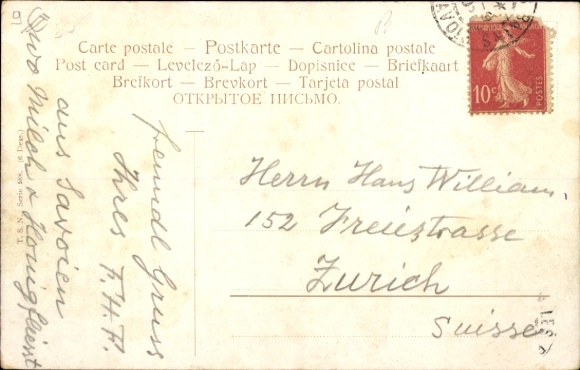 Carte postale — Postkarte — Cartolina postale
Post card — Levelező-Lap — Dopisnice — Briefkaart
Brefkort — Brevkort — Tarjeta postal
ОТКРЫТОЕ ПИСЬМО.
REPUBLIQUE FRANÇAISE
10c
POSTES
T. S. N. Serie (6 Dess.)
Herrn Hans William
152 Freiestrasse
Zurich
Suisse
freundl Gruss
Ihres F.H.F.
aus Savoien
wo Milch & Honig fliesst